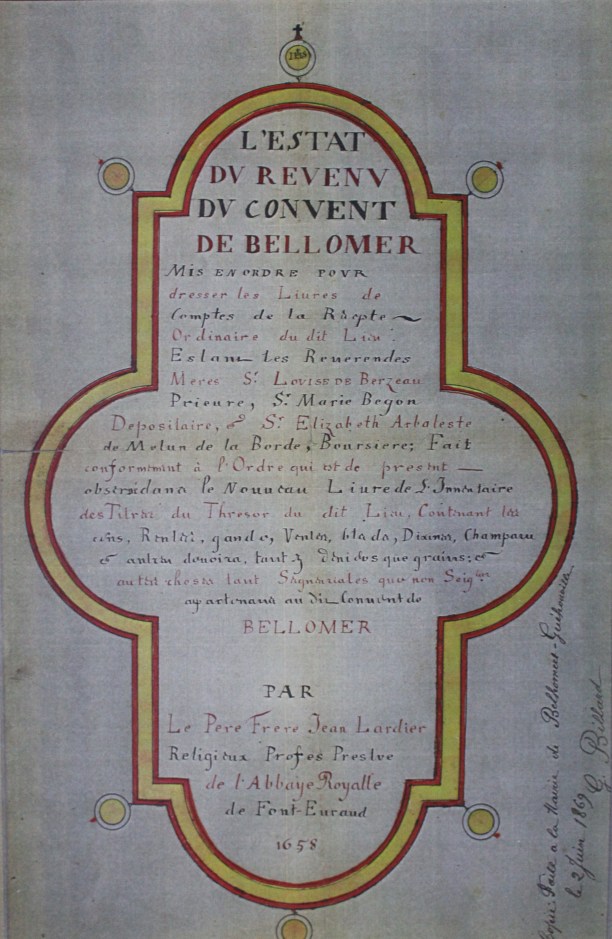 IHS
L'ESTAT
DV REVENV
DV CONVENT
DE BELLOMER
MIS EN ORDRE POVR
dresser les Liures de
Comptes de la Récpte
Ordinaire du dit Lieu.
Estant les Reuerendes
Meres Sr. LOVISE DE Berzeau
Prieure, Sr. Marie Begon
Depositaire, & Sr. Elizabeth Arbaleste
de Melun de la Borde, Boursiere; Fait
conformement à l'Ordre qui est de present
obserué dans le Nouueau Liure de L'Inuentaire
des Titres du Thresor du dit Lieu, Contenant les
cens, Rentes, Ventes, bleds, Dixmes, Champars
& autres deuoirs, tant deniers que grains; &
autres choses tant Seigneuriales que non
apartenans au dit Conuent de
BELLOMER
PAR
Le Pere Frere Jean Lardier
Religieux Profes Prestre
de l'Abbaye Royalle
de Font-Euraud
1658
Copie faite à la Mairie de Belhomert-Guéhouville
le 2 Juin 1869 G. Billard